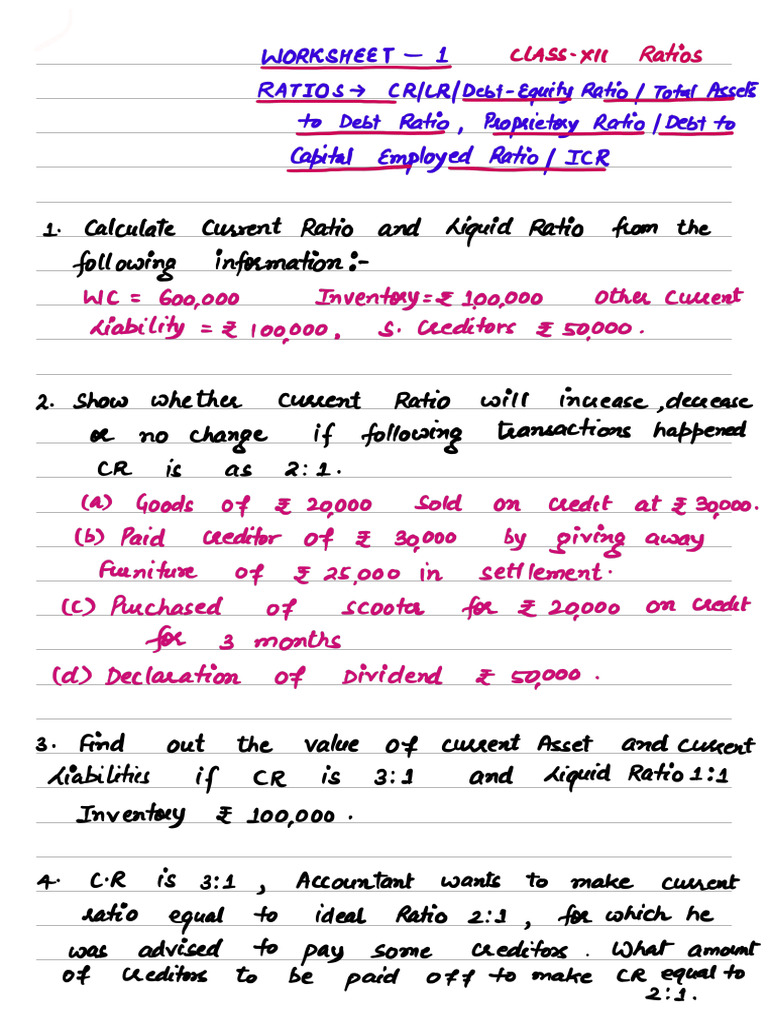 WORKSHEET - 1 CLASS-XII Ratios
RATIOS → CR/LR/Debt-Equity Ratio/Total Assets
to Debt Ratio, Proprietory Ratio/Debt to
Capital Employed Ratio/ICR
1. Calculate Current Ratio and Liquid Ratio from the
following information:-
WC = 600,000 Inventory = ₹ 1,00,000 Other Current
Liability = ₹ 100,000, S. Creditors ₹ 50,000.
2. Show whether current Ratio will increase, decrease
or no change if following transactions happened
CR is as 2:1.
(a) Goods of ₹ 20,000 Sold on credit at ₹ 30,000.
(b) Paid creditor of ₹ 30,000 by giving away
Furniture of ₹ 25,000 in settlement.
(c) Purchased of scooter for ₹ 20,000 on credit
for 3 months
(d) Declaration of Dividend ₹ 50,000.
3. Find out the value of current Asset and current
Liabilities if CR is 3:1 and Liquid Ratio 1:1
Inventory ₹ 100,000.
4. C.R is 3:1, Accountant wants to make current
ratio equal to ideal Ratio 2:1, for which he
was advised to pay some creditors. What amount
of creditors to be paid off to make CR equal to
2:1.